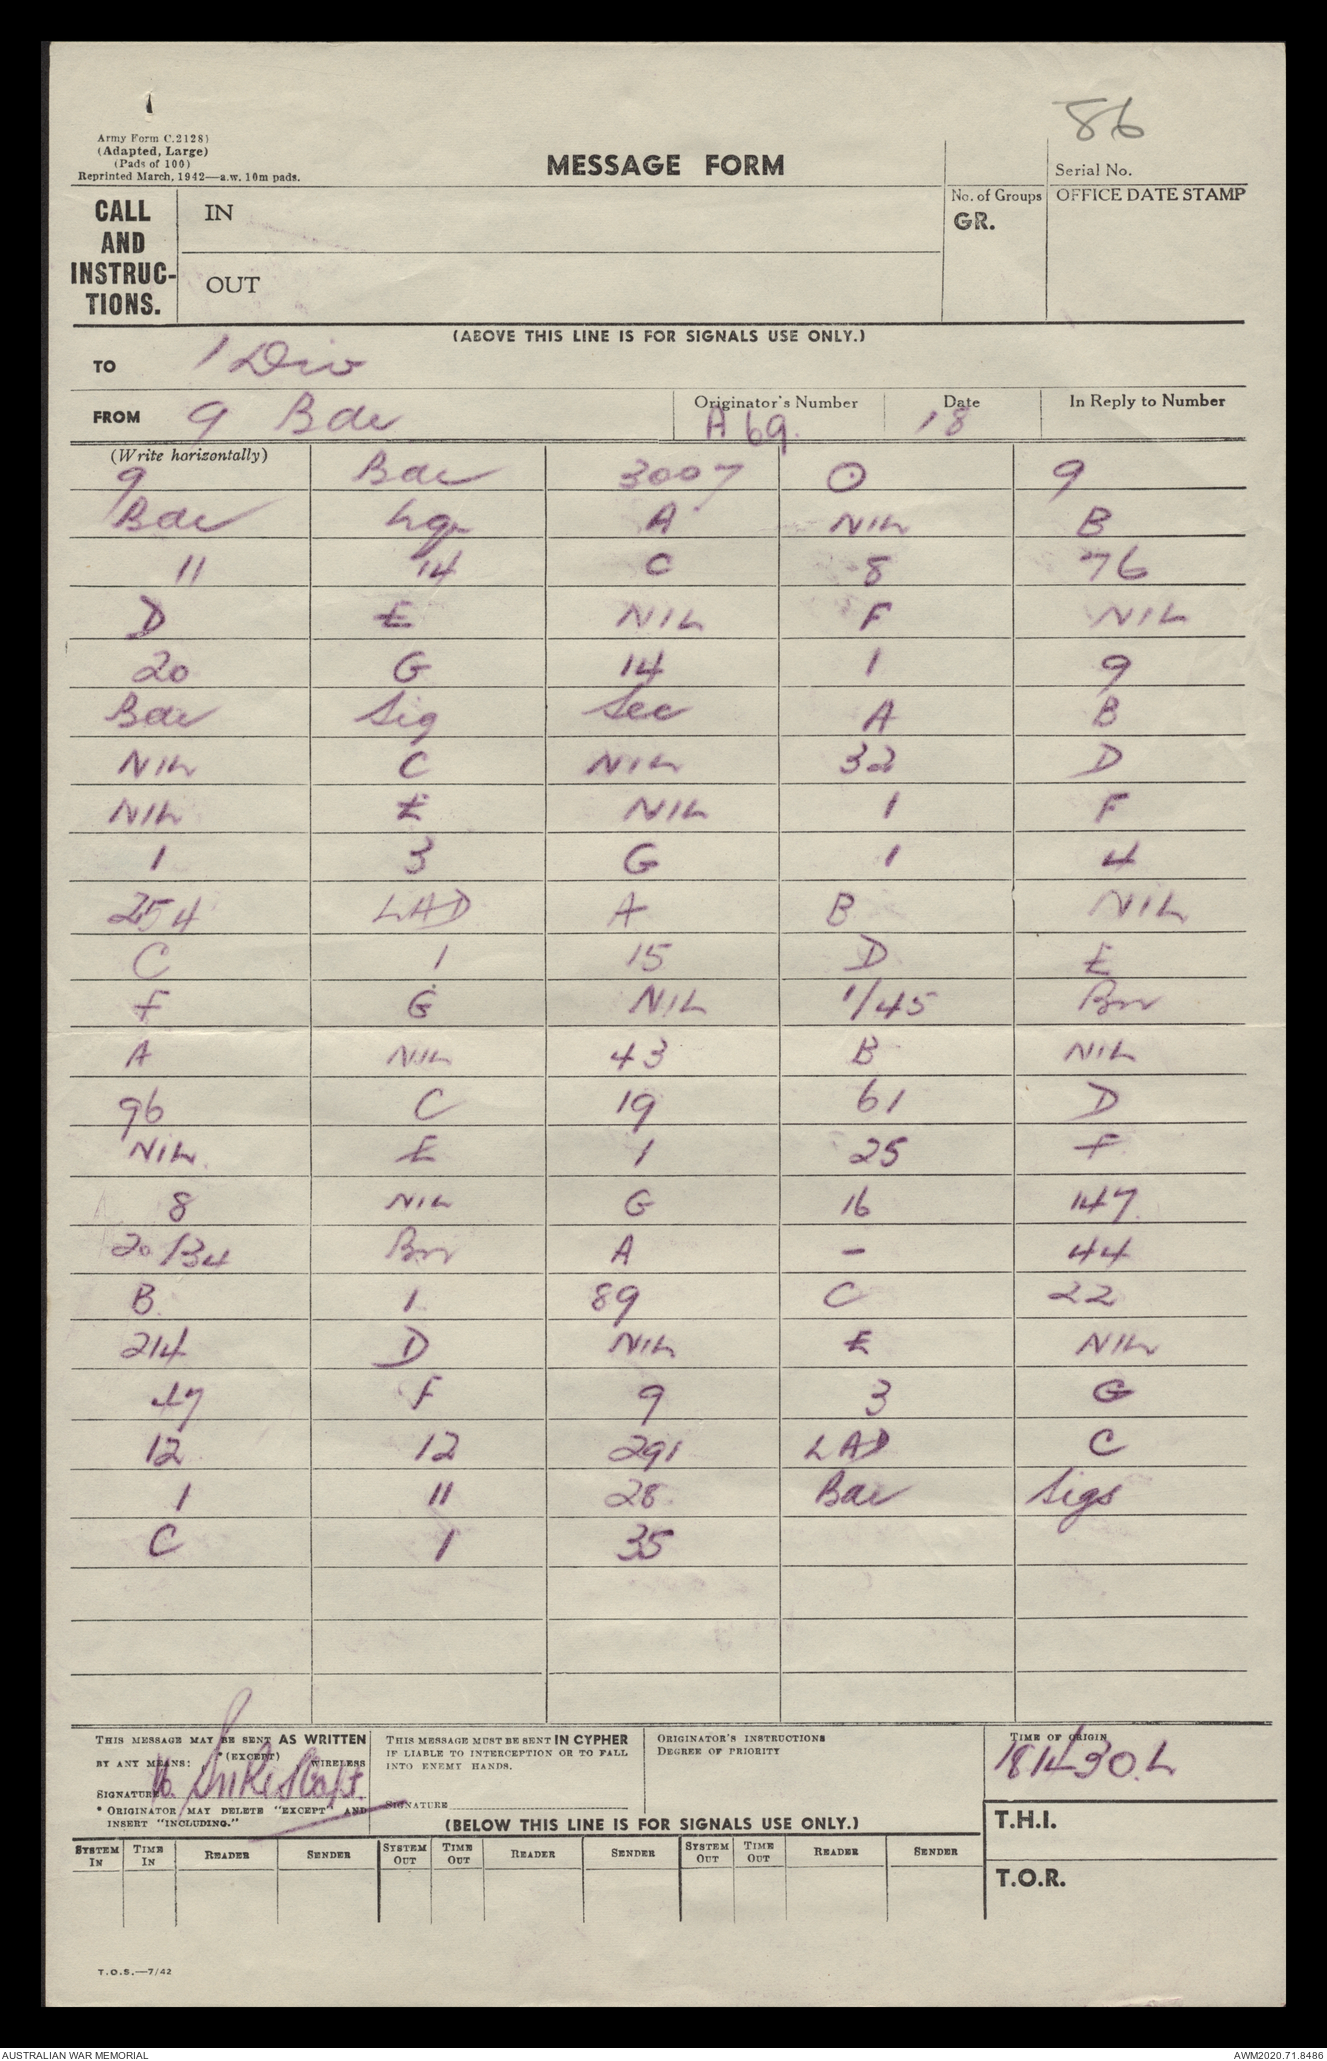 86
Army Form C.2128)
(Adapted, Large)
(Pads of 100)
Reprinted March, 1942—a.w. 10m pads.
MESSAGE FORM
Serial No.
CALL AND INSTRUC-TIONS.
IN
OUT
No. of Groups
GR.
OFFICE DATE STAMP
(ABOVE THIS LINE IS FOR SIGNALS USE ONLY.)
TO 1 Div
FROM 9 Bde
Originator's Number A 69.
Date 18
In Reply to Number
(Write horizontally)
9 Bde 3007 ⊙ 9
Bde hq A NIL B
11 14 C 8 76
D E NIL F NIL
20 G 14 1 9
Bde Sig Sec A B
NIL C NIL 32 D
NIL E NIL 1 F
1 3 G 1 4
254 LAD A B NIL
C 1 15 D E
F G NIL 1/45 Bn
A NIL 43 B NIL
96 C 19 61 D
NIL E 1 25 F
8 NIL G 16 147
20/34 Bn A - 44
B 1 89 C 22
214 D NIL E NIL
47 F 9 3 G
12 12 291 LAD C
1 11 28 Bde Sigs
C 1 35
THIS MESSAGE MAY BE SENT AS WRITTEN
BY ANY MEANS: * (EXCEPT) WIRELESS
SIGNATURE Capt.
* ORIGINATOR MAY DELETE "EXCEPT" AND
INSERT "INCLUDING."
THIS MESSAGE MUST BE SENT IN CYPHER
IF LIABLE TO INTERCEPTION OR TO FALL
INTO ENEMY HANDS.
SIGNATURE
ORIGINATOR'S INSTRUCTIONS
DEGREE OF PRIORITY
TIME OF ORIGIN
181430.L
(BELOW THIS LINE IS FOR SIGNALS USE ONLY.)
T.H.I.
T.O.R.
SYSTEM IN TIME IN READER SENDER SYSTEM OUT TIME OUT READER SENDER SYSTEM OUT TIME OUT READER SENDER
T.O.S.—7/42
AUSTRALIAN WAR MEMORIAL
AWM2020.71.8486